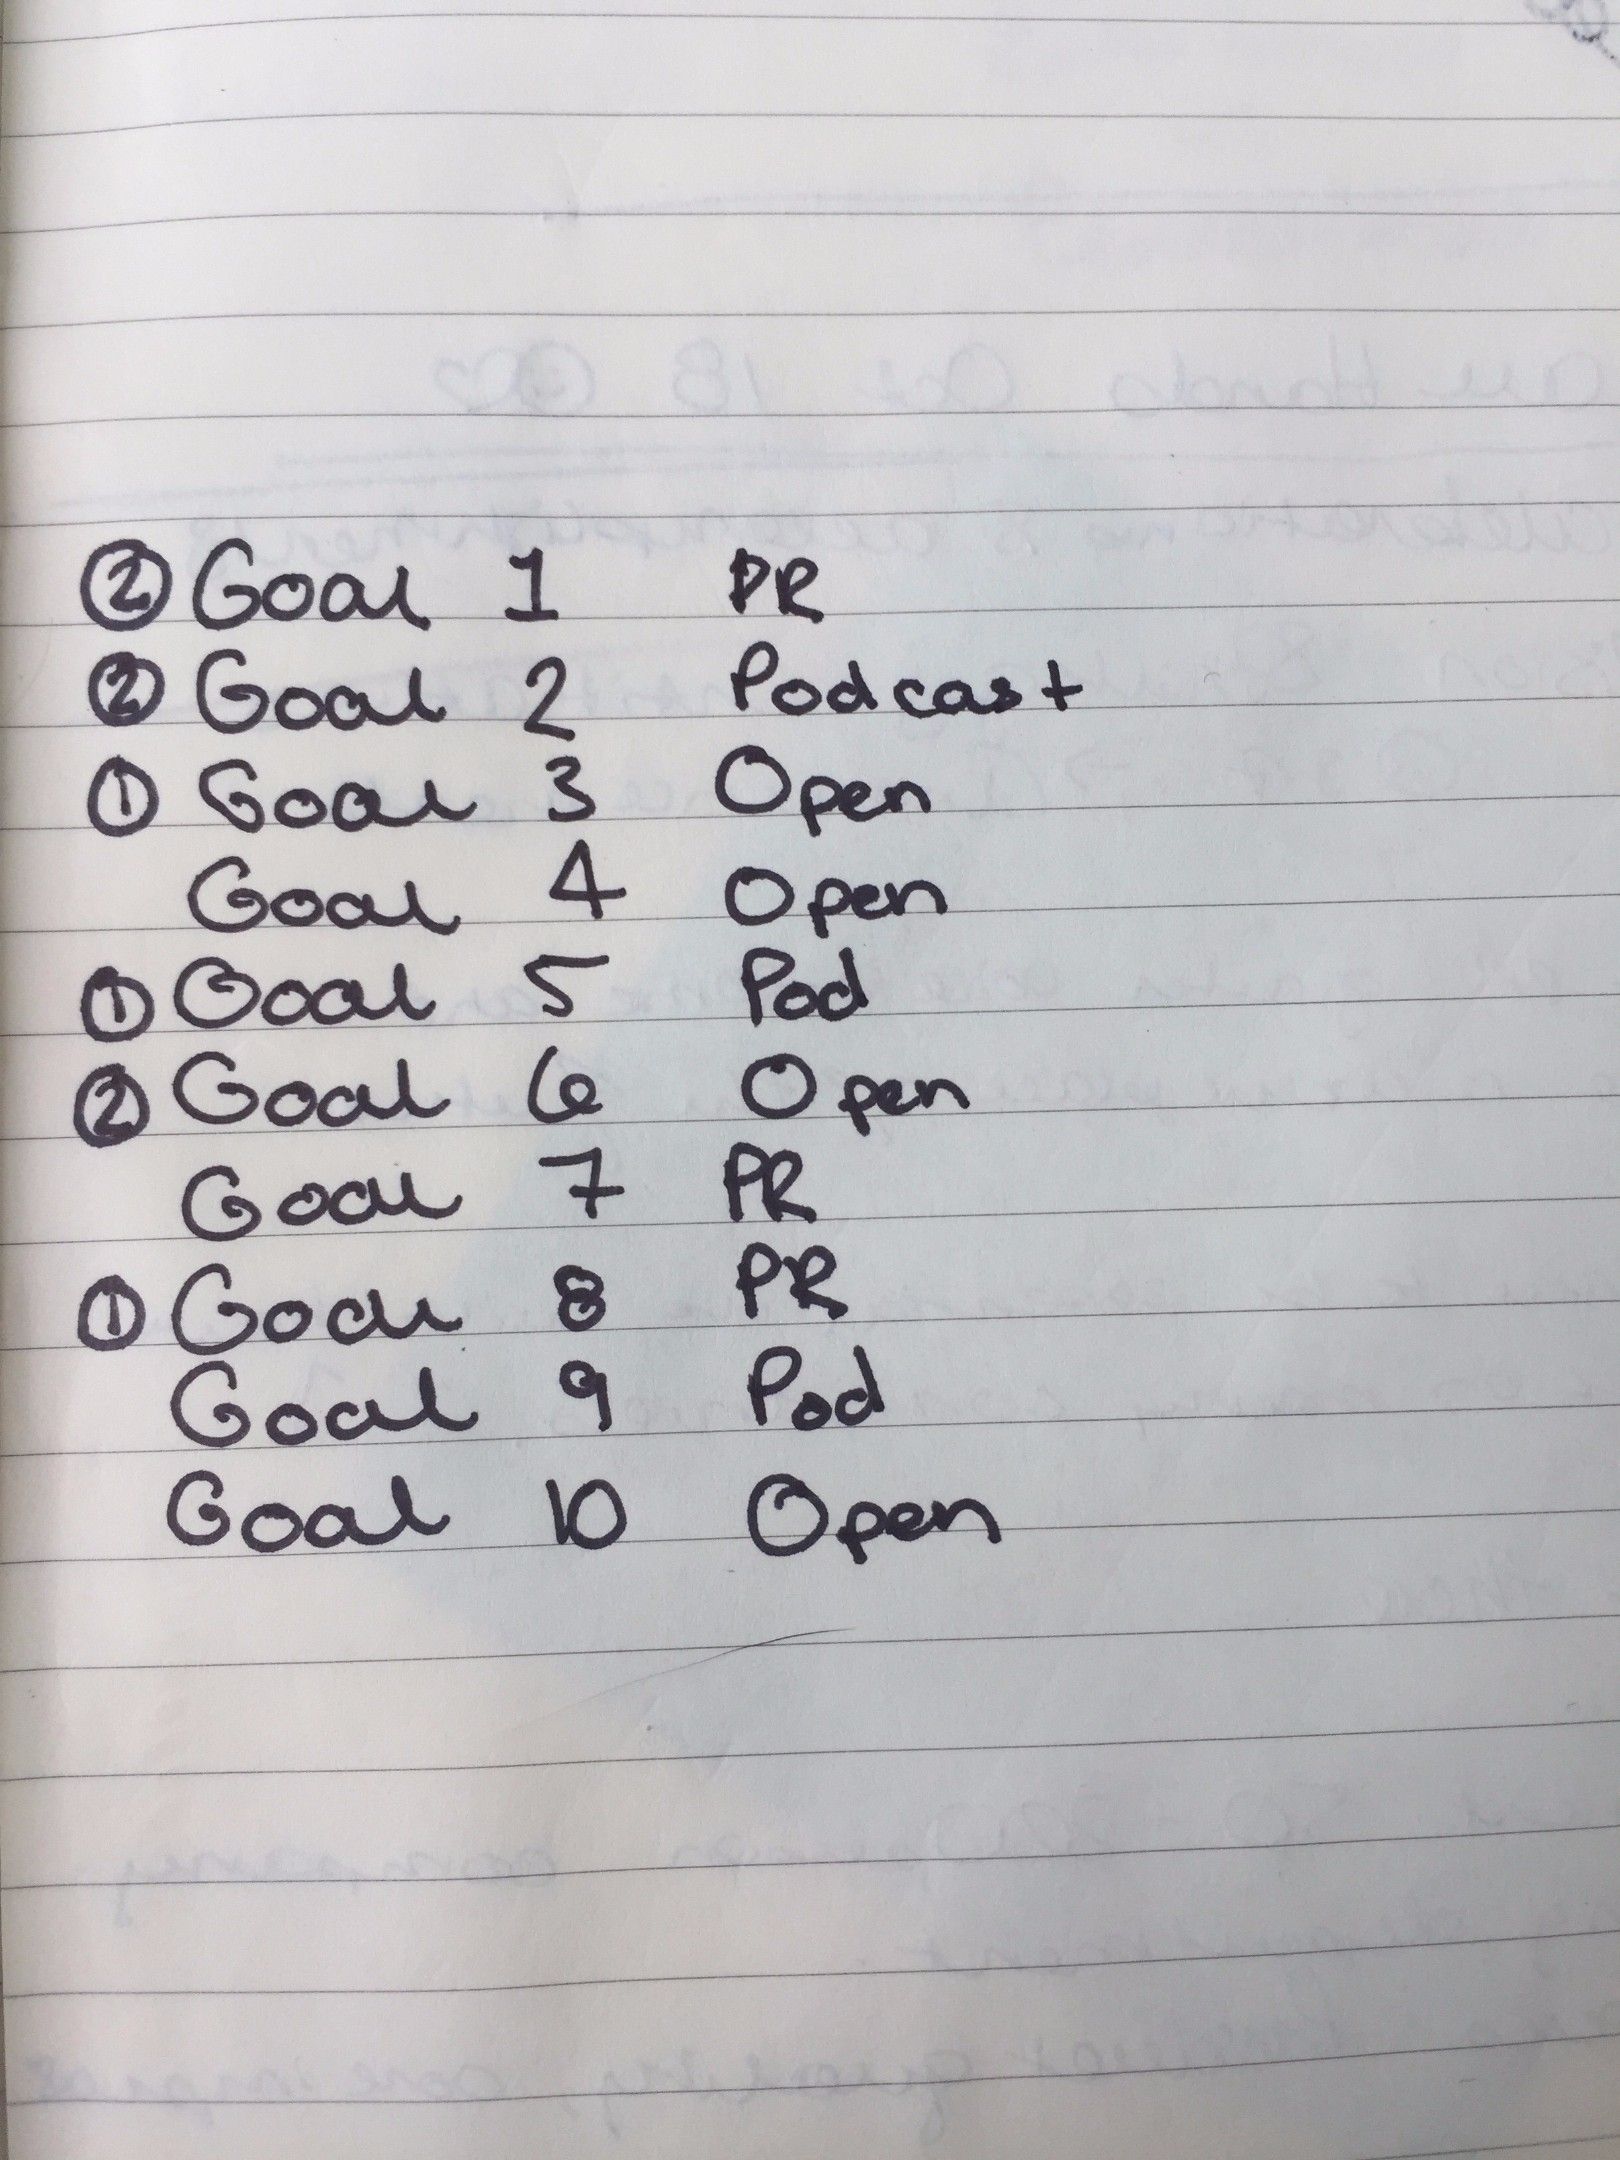 ② Goal 1 PR
② Goal 2 Podcast
① Goal 3 Open
Goal 4 Open
① Goal 5 Pod
② Goal 6 Open
Goal 7 PR
① Goal 8 PR
Goal 9 Pod
Goal 10 Open